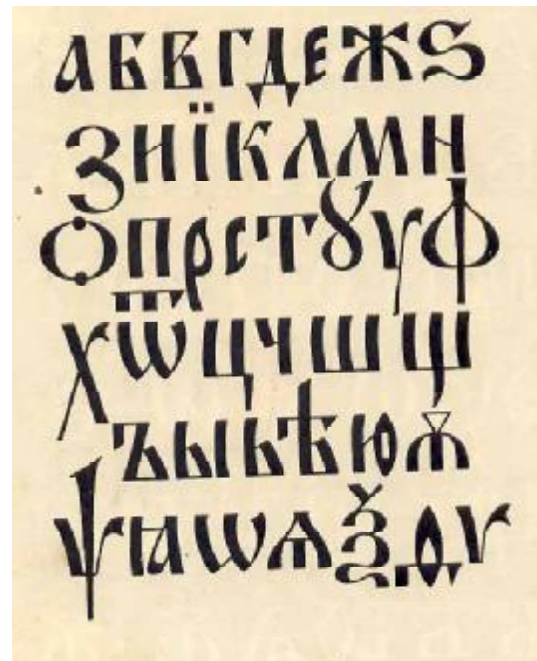 абвгдежѕ
зиїклмн
опрстꙋуф
хѿцчшщ
ъыьѣюѫ
ѱꙗѡѧѯѳѵ